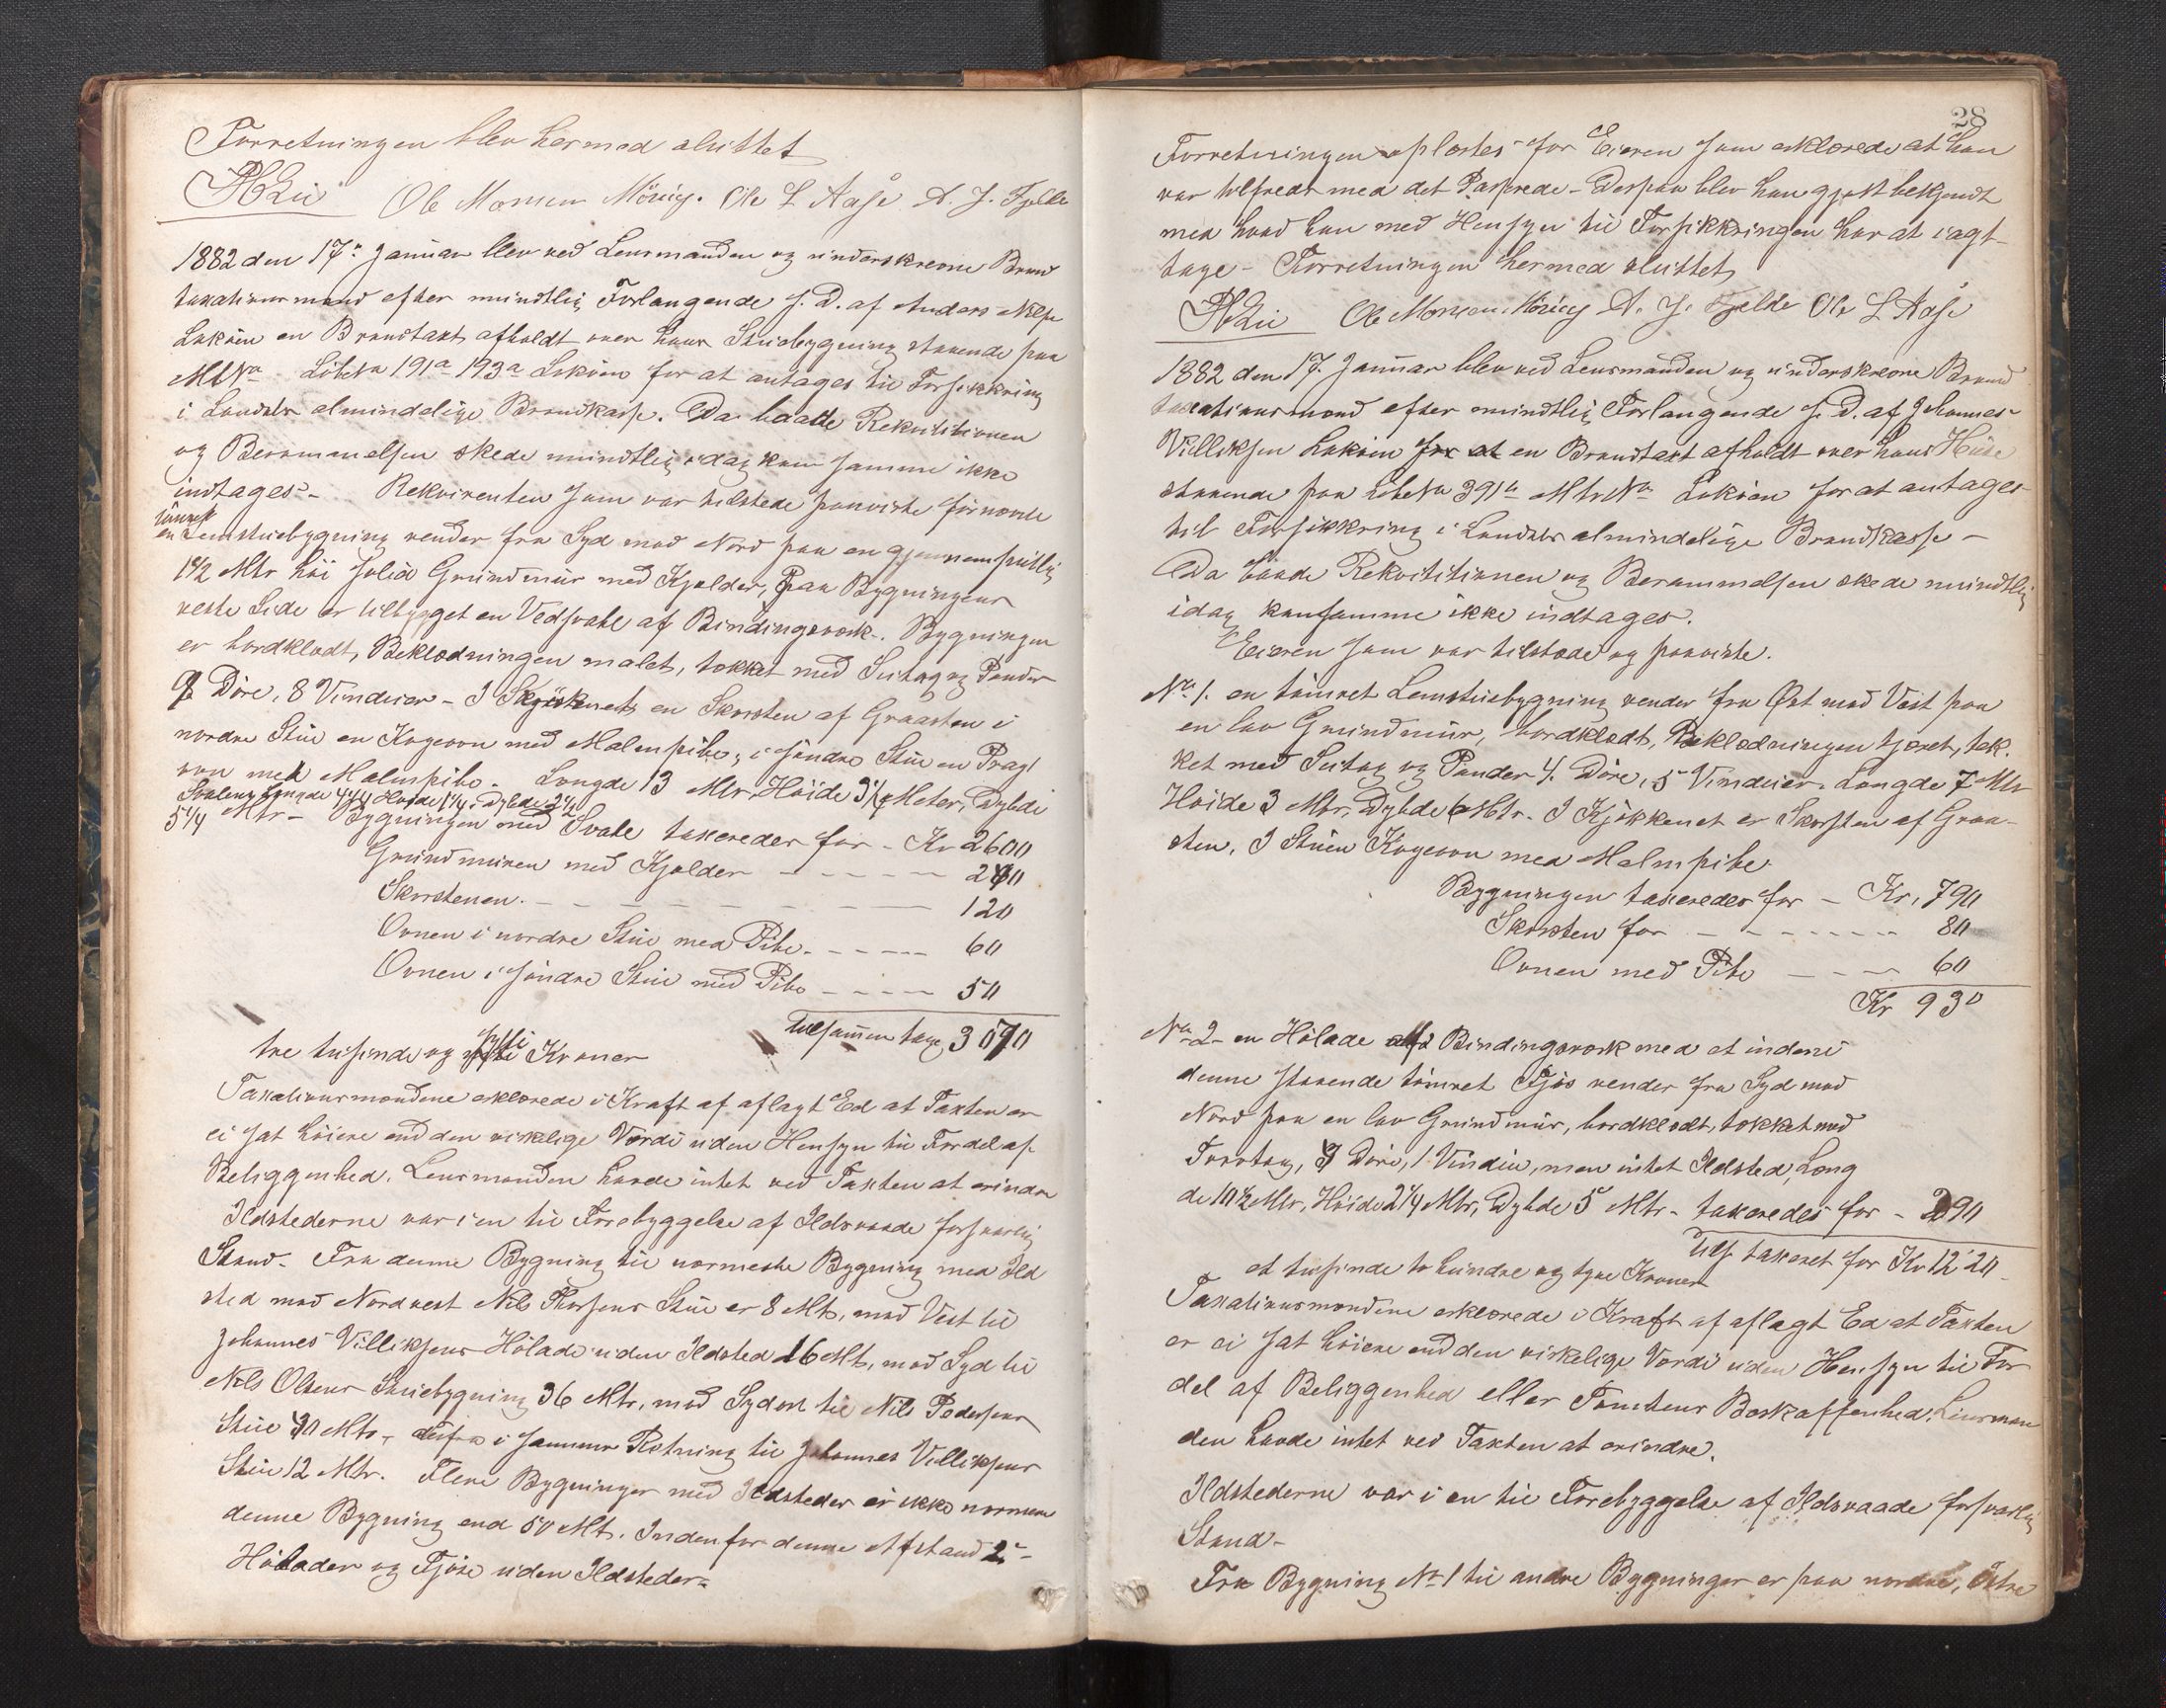 Forretningen blev hermed sluttet
Ole Monsen Möviig. Ole L Aase A. J. Fjelde
1882 den 17de Januar blev ved Lensmanden og underskrevne Brand
taxationsmænd efter mundtlig Forlangende s. D. af Anders Nilse
Lokøen en Brandtaxt afholdt over hans Stuebygning staaende paa
Mt No Löbe No 191a 193a Lokøen for at antages til Forsikkring
i Landets almindelige Brandkasse. Da baade Rekvisitionen
og Berammelsen skede mundtlig idag kan samme ikke
indtages. Rekvirenten som var tilstede paaviste fornevnte
tömret
en Lemstuebygning vender fra Syd mod Nord paa en gjennemsnitlig
1 1/2 Mtr höi solid Grundmur med Kjelder, Paa Bygningens
veste Side er tilbygget en Vedsvale af Bindingsverk. Bygningen
er bordklædt, Beklædningen malet, tækket med Sutag og Pander
9 Döre, 8 Vinduer - I Kjökkenet en Skorsten af Graasten i
nordre Stue en Kogeovn med Malmpibe; i söndre Stue en Pragt
ovn med Malmpibe. Længde 13 Mtr, Höide 3 1/4 Meter, Dybde
Svalens Længde 4 1/4 Höide 1 1/4, Dybde 2 1/2
5 1/4 Mtr - Bygningen med Svale taxeredes for - Kr 2600
Grundmuren med Kjelder - - - - - 240
Skorstenen. - - - - - - - 120
Ovnen i nordre Stue med Pibe. - - - - 60
Ovnen i söndre Stue med Pibe - - - - 50
Tilsammen taxe 3070
tre tusinde og sytti Kroner
Taxationsmændene erklærede i Kraft af aflagt Ed at Taxten er
ei sat höiere end den virkelige Værdi uden Hensyn til Fordel af
Beliggenhed. Lensmanden havde intet ved Taxten at erindre
Ildstederne var i en til Forebyggelse af Ildsvaade forsvarlig
Stand. Fra denne Bygning til nærmeste Bygning med Ild
sted mod Nordvest Nils Thorsens Stue er 8 Mtr, mod Vest til
Johannes Villiksens Hölade uden Ildsted 16 Mtr, mod Syd til
Nils Olsens Stuebygning 36 Mtr, mod Sydost til Nils Pedersens
Stue 40 Mtr, i samme Retning til Johannes Villiksens
Stue 12 Mtr. Flere Bygninger med Ildsteder er ikke nærmere
denne Bygning end 50 Mtr. Indenfor denne Afstand 2 -
Hölader og Fjöse uden Ildsteder.
28
Forretningen oplæstes for Eieren som erklærede at han
var tilfreds med det Passerede - Desuden blev han gjort bekjendt
med hvad han med Hensyn til Forsikkringen har at iagt-
tage - Forretningen hermed sluttet
Ole Monsen Möviig A. J. Fjelde Ole L Aase
1882 den 17. Januar blev ved Lensmanden og underskrevne Brand
taxationsmænd efter mundtlig Forlangende s. D. af Johannes
Villiksen Lokøen for at en Brandtaxt afholdt over hans Huse
staaende paa Löbe No 391b Mtr No Lokøen for at antages
til Forsikkring i Landets almindelige Brandkasse -
Da baade Rekvisitionen og Berammelsen skede mundtlig
idag kan samme ikke indtages.
Eieren som var tilstede og paaviste.
No 1. en tömret Lemstuebygning vender fra Öst mod Vest paa
en lav Grundmur, bordklædt, Beklædningen tjæret, tæk-
ket med Sutag og Pander 4 Döre, 5 Vinduer. Længde 7 Mtr
Höide 3 Mtr, Dybde 6 Mtr. I Kjökkenet er Skorsten af Graa-
sten, I Stuen Kogeovn med Malmpibe
Bygningen taxeredes for - Kr. 790
Skorsten for - - - - - - 80
Ovnen med Pibe - - - 60
Kr 930
No 2 en Hölade af Bindingsverk med et inden i
denne staaende tömret Fjös vender fra Syd mod
Nord paa en lav Grundmur, bordklædt, tækket med
Torvtag, 3 Döre, 1 Vindue, men intet Ildsted, Læng
de 10 1/2 Mtr, Höide 2 1/4 Mtr, Dybde 5 Mtr - taxeredes for - 290
Tils taxeret for Kr 1220
et tusinde to hundre og tyve Kroner
Taxationsmændene erklærede i Kraft af aflagt Ed at Taxten
er ei sat höiere end den virkelige Værdi uden Hensyn til For
del af Beliggenhed eller Tomtens Beskaffenhed. Lensman
den havde intet ved Taxten at erindre.
Ildstederne var i en til Forebyggelse af Ildsvaade forsvarlig
Stand -
Fra Bygning No 1 til andre Bygninger er paa nordre, östre